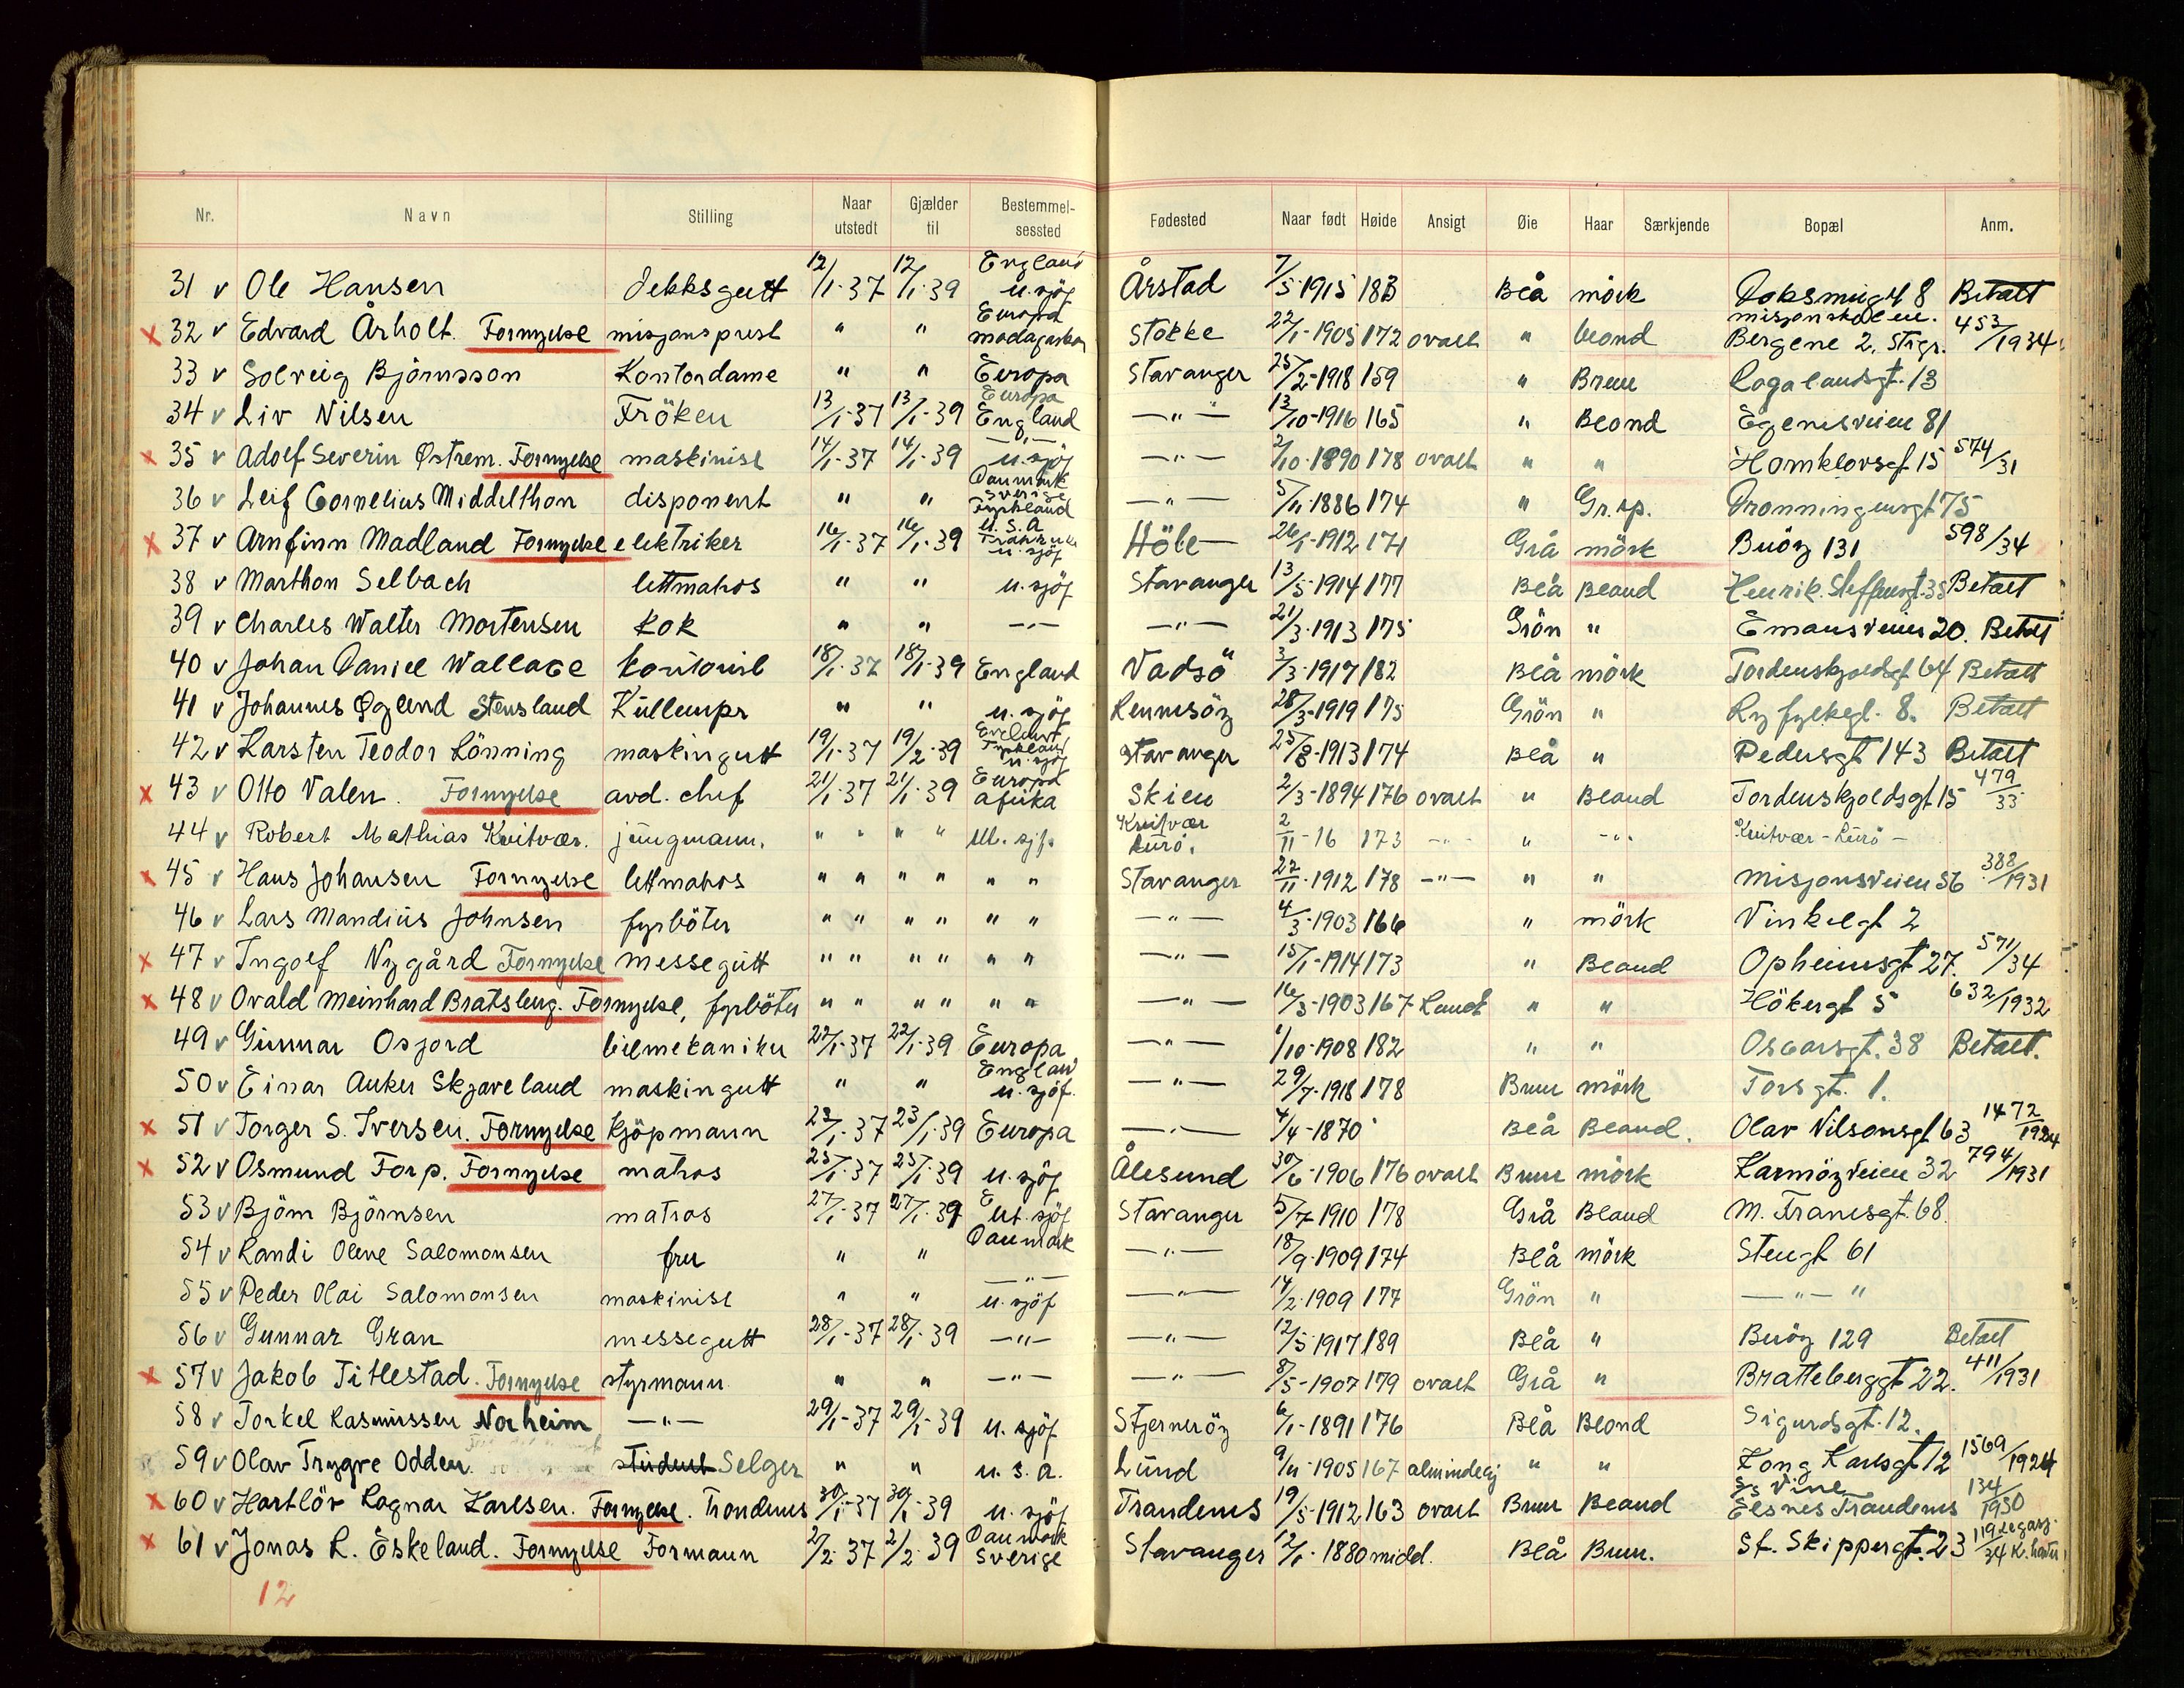 Nr. Navn Stilling Naar utstedt Gjælder til Bestemmelsessted Fødested Naar født Høide Ansigt Øie Haar Særkjende Bopæl Anm.
31 v Ole Hansen dekksgutt 12/1-37 12/1-39 England u.sjöf Årstad 7/5-1915 183 Blå mörk 8 Betalt
x 32 v Edvard Årholt. Fornyelse misjonsprest " " Europa madagaskar Stokke 22/1-1905 172 ovalt " blond misjonsskolen. Bergene 2. Strgr. 453/1934
33 v Solveig Björnsson Kontordame " " Europa Stavanger 25/2-1918 159 " Brun Rogalandsgt. 13
34 v Liv Nilsen Fröken 13/1-37 13/1-39 Europa England —"— 13/10-1916 165 " Blond Egenesveien 81
x 35 v Adolf Severin Østrem. Fornyelse maskinist 14/1-37 14/1-39 —"— u.sjöf —"— 2/10-1890 178 ovalt " " Homklovsgt 15 574/31
36 v Leif Cornelius Middelthon disponent " " Danmark Sverige Tyskland —"— 5/11-1886 174 " Gr.sp. Dronningensgt 75
x 37 v Arnfinn Madland Fornyelse elektriker 16/1-37 16/1-39 U.S.A Frankrike u.sjöf Höle — 26/1-1912 171 Grå mörk Buöy 131 598/34
38 v Marthon Selbach lettmatros " " u.sjöf Stavanger 13/5-1914 177 Blå Blond Henrik Steffensgt. 38 Betalt
39 v Charles Walter Mortensen Kok " " —"— —"— 21/3-1913 175 Grön " Emausveien 20. Betalt
40 v Johan Daniel Wallace Kontorist 18/1-37 18/1-39 England Vadsö 3/3-1917 182 Blå mörk Tordenskjoldsgt 64 Betalt
41 v Johannes Øglend Stensland Küllempr " " u.sjöf Rennesöy 28/3-1919 175 Grön " Ryfylkegt. 8. Betalt
42 v Karsten Teodor Lönning maskingutt 19/1-37 19/2-39 England Tyskland u.sjöf Stavanger 25/8-1913 174 Blå " Pedersgt 143 Betalt
x 43 v Otto Valen. Fornyelse avd. chef 21/1-37 21/1-39 Europa afrika Skien 2/3-1894 176 ovalt " Blond Tordenskjoldsgt 15 479/33
44 v Robert Mathias Kvitvær. jüngmann. " " " " Ut. sjf. Kvitvær Lurö. 2/11-16 173 —"— " —"— Kvitvær - Lurö -
x 45 v Hans Johansen Fornyelse lettmatros " " " " " " Stavanger 22/11-1912 178 —"— " " misjonsveien 56 388/1931
46 v Lars Mandius Johnsen fyrböter " " " " " " —"— 4/3-1903 166 " mörk Vinkelgt 2
x 47 v Ingolf Nygård Fornyelse messegutt " " " " " " —"— 15/1-1914 173 " Blond Opheimsgt 27. 571/34
x 48 v Ovald Meinhard Bratsberg. Fornyelse, fyrböter " " " " " " —"— 16/3-1903 167 Rundt " " Hökergt 5 632/1932
49 v Gunnar Osjord bilmekaniker 22/1-37 22/1-39 Europa —"— 1/10-1908 182 " " Oscarsgt. 38 Betalt.
50 v Einar Anker Skjæveland maskingutt " " England u.sjöf. —"— 29/7-1918 178 Brun mörk Torsgt. 1.
x 51 v Torger S. Iversen. Fornyelse kjöpmann 23/1-37 23/1-39 Europa —"— 4/4-1870 Blå Blond. Olav Nilsonsgt 63 1472/1924
x 52 v Osmund Forp. Fornyelse matros 25/1-37 25/1-39 u.sjöf Ålesund 30/6-1906 176 ovalt Brun mörk Karmöyveien 32 794/1931
53 v Björn Björnsen matros 27/1-37 27/1-39 E ut.sjöf Stavanger 5/7-1910 178 Grå Blond M. Fransgt. 68
54 v Randi Olene Salomonsen fru " " Danmark —"— 18/9-1909 174 Blå mörk Stengt 61
55 v Peder Olai Salomonsen maskinist " " —"— u.sjöf —"— 14/2-1909 177 Grön " —"— "
56 v Gunnar Gran messegutt 28/1-37 28/1-39 —"— —"— 12/5-1917 189 Blå " Buöy 129 Betalt
x 57 v Jakob Titlestad. Fornyelse styrmann " " —"— —"— 8/5-1907 179 ovalt Grå " Brattebergsgt 22. 411/1931
58 v Torkel Rasmussen Norheim —"— 29/1-37 29/1-39 u.sjöf Stjerneröy 6/1-1891 176 Blå Blond Sigurdsgt. 12.
59 v Olav Trygve Odden. student Selger " " u.s.a. Lund 9/11-1905 167 almindelig " " Kong Karlsgt 12 1569/1924
x 60 v Hartlöv Ragnar Karlsen. Fornyelse. Trondenes 30/1-37 30/1-39 u.sjöf Trandenes 19/5-1912 163 ovalt Brun Blond Elsnes Trandenes 134/1930
x 61 v Jonas L. Eskeland. Fornyelse Formann 2/2-37 2/2-39 Danmark Sverige Stavanger 12/1-1880 midd. Blå Brun. St. Skippergt. 23 119/34
12